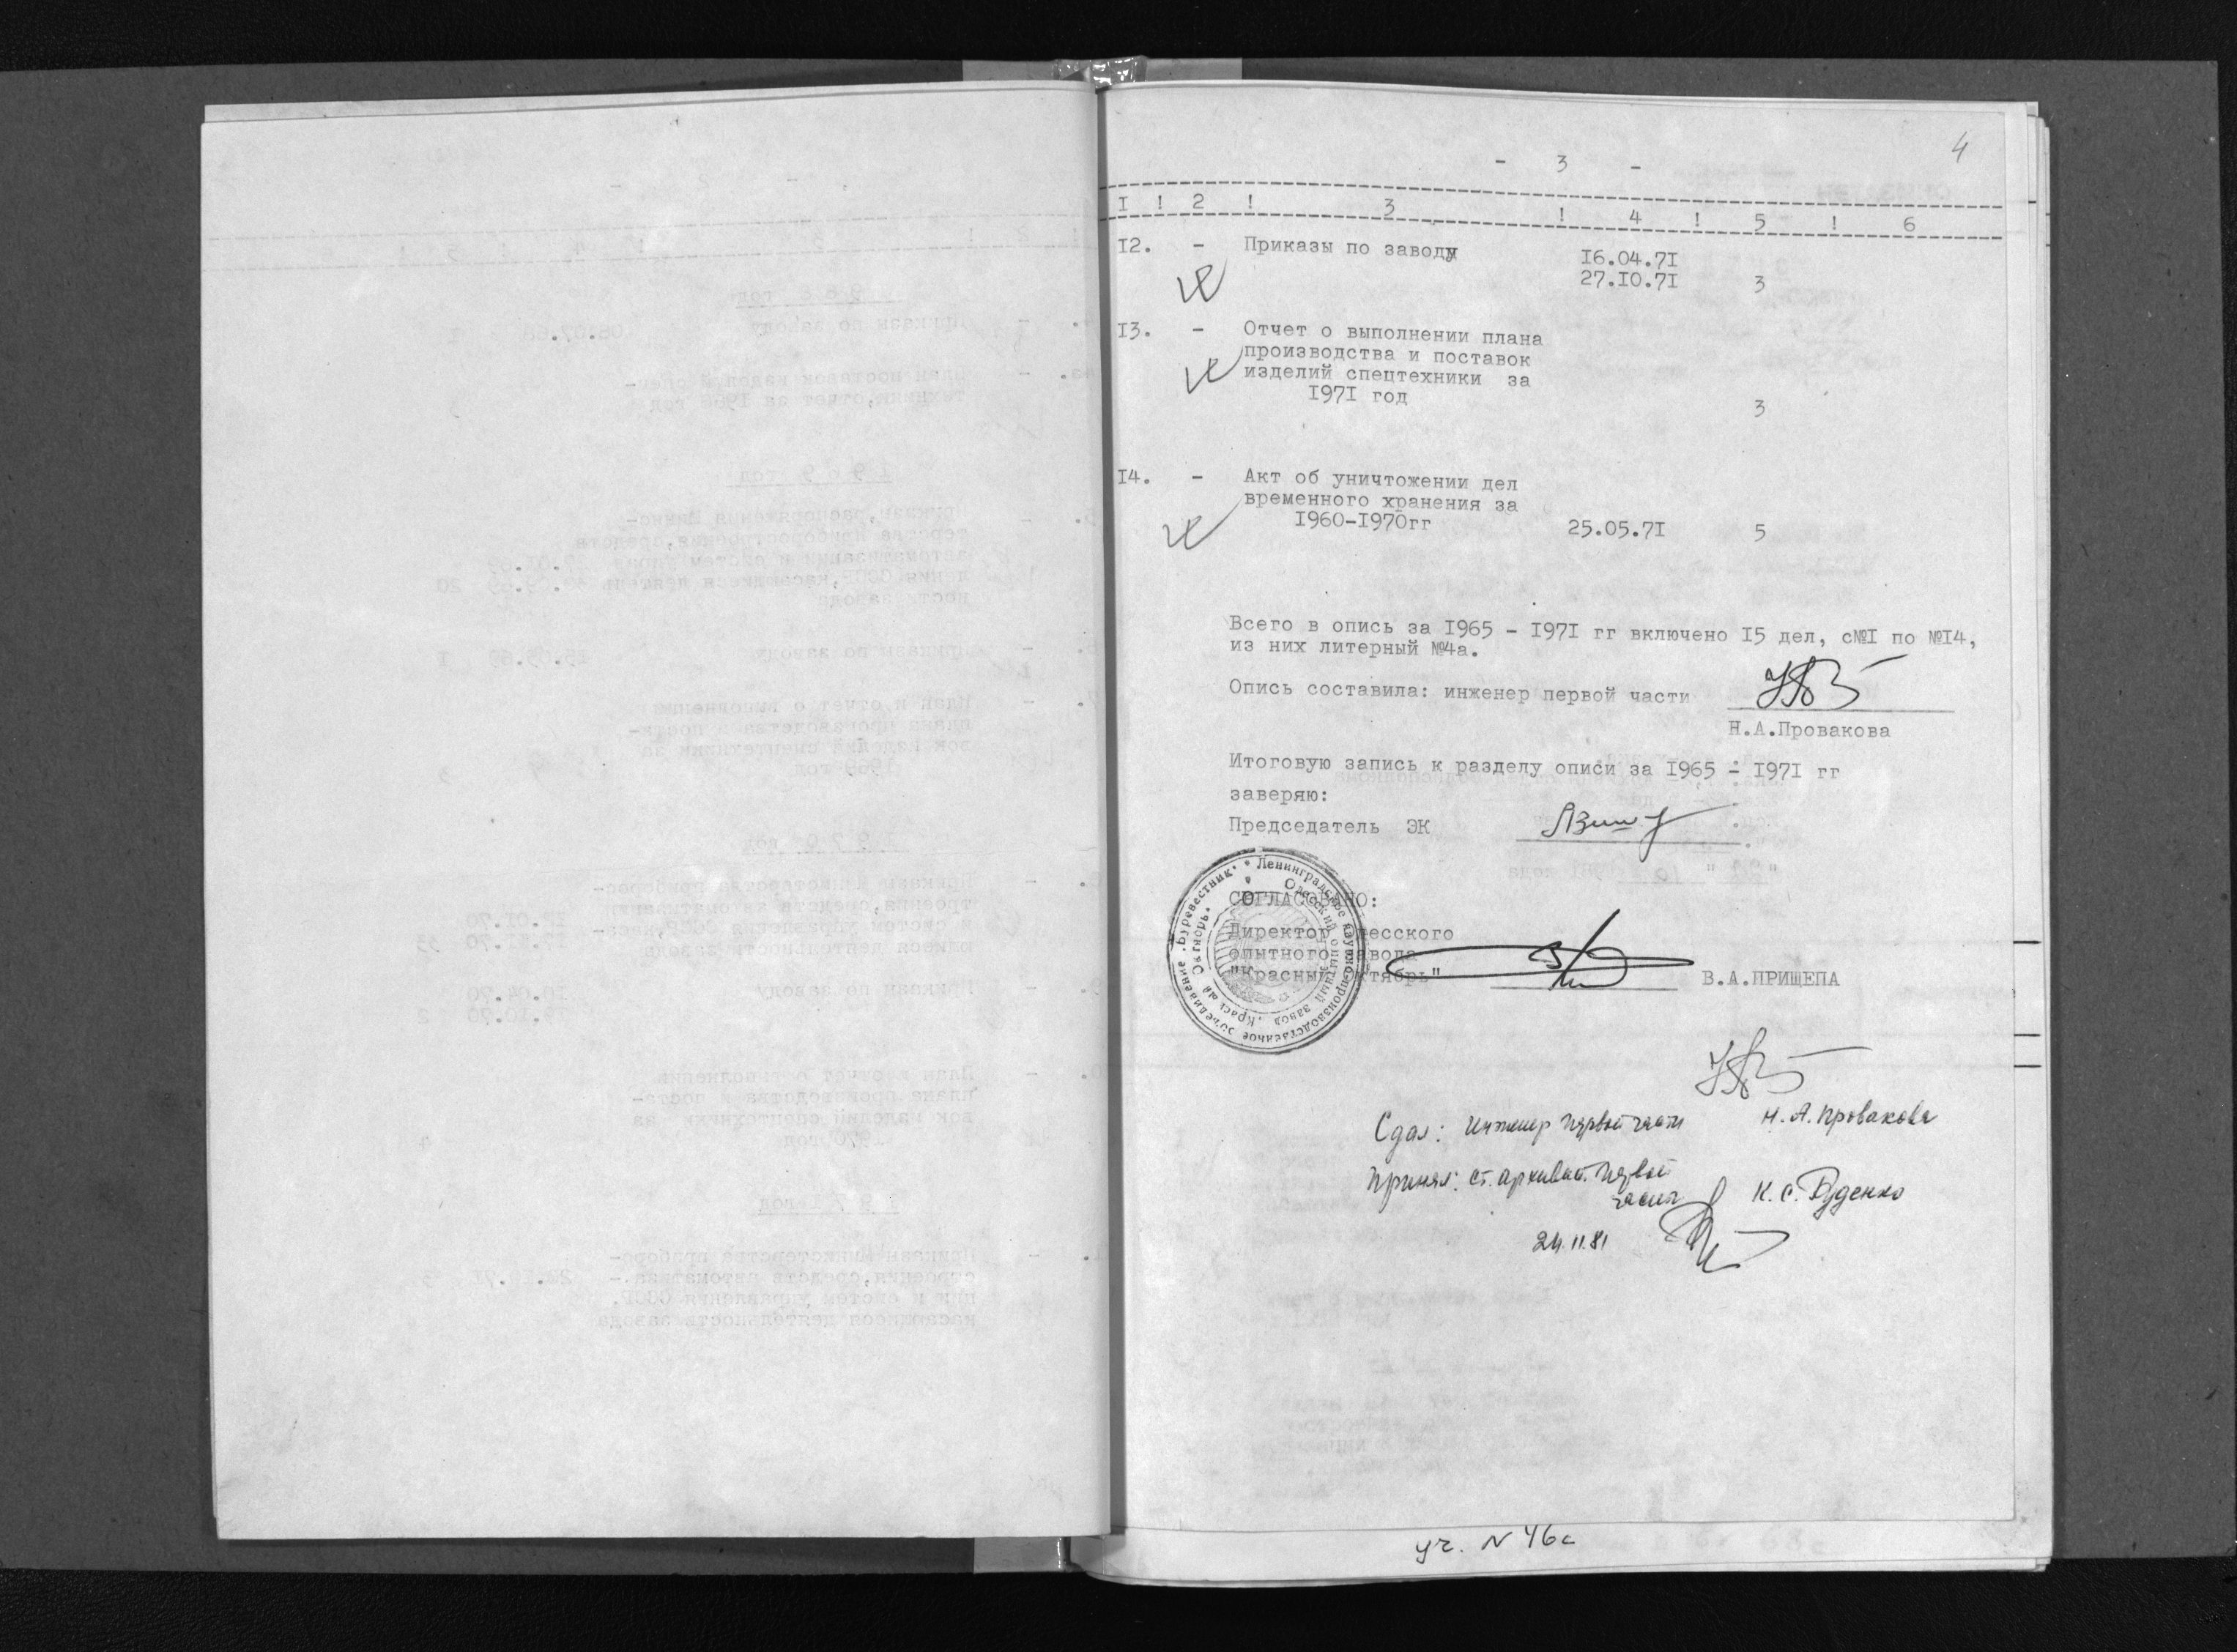 4
- 3 -
I ! 2 ! 3 ! 4 ! 5 ! 6
I2. - Приказы по заводу I6.04.7I
27.I0.7I 3
I3. - Отчет о выполнении плана
производства и поставок
изделий спецтехники за
I97I год
3
I4. - Акт об уничтожении дел
временного хранения за
I960-I970гг 25.05.7I 5
Всего в опись за I965 - I97I гг включено I5 дел, с№I по №I4,
из них литерный №4а.
Опись составила: инженер первой части
Н.А.Провакова
Итоговую запись к разделу описи за I965 - I97I гг
заверяю:
Председатель ЭК
СОГЛАСОВАНО:
Директор Одесского
опытного завода
"Красный Октябрь" В.А.ПРИЩЕПА
Ленинградское научно-производственное объединение „Буревестник"
Одесский опытный завод „Красный Октябрь"
Сдал: Инженер первой части Н.А. Провакова
Принял: ст. архиват. первой
части К.С. Руденко
24.11.81
уч. N 46с